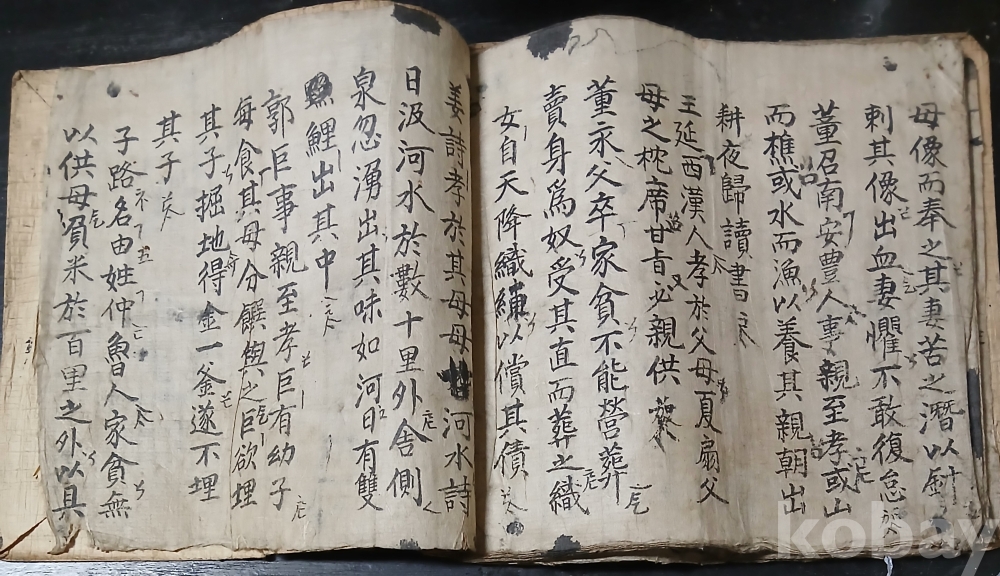 母像而奉之其妻苦之潛以針
刺其像出血妻懼不敢復怠
董召南安豊人事親至孝或山
而樵或水而漁以養其親朝出
耕夜歸讀書
王延西漢人孝於父母夏扇父
母之枕席甘旨必親供
董永父卒家貧不能營葬
賣身爲奴受其直而葬之織
女自天降織縑以償其債
姜詩孝於其母母 河水詩
日汲河水於數十里外舍側
泉忽湧出其味如河日有雙
鯉出其中
郭巨事親至孝巨有幼子
每食其母分饌與之巨欲埋
其子掘地得金一釜遂不埋
其子
子路名由姓仲魯人家貧無
以供母負米於百里之外以具
kobay